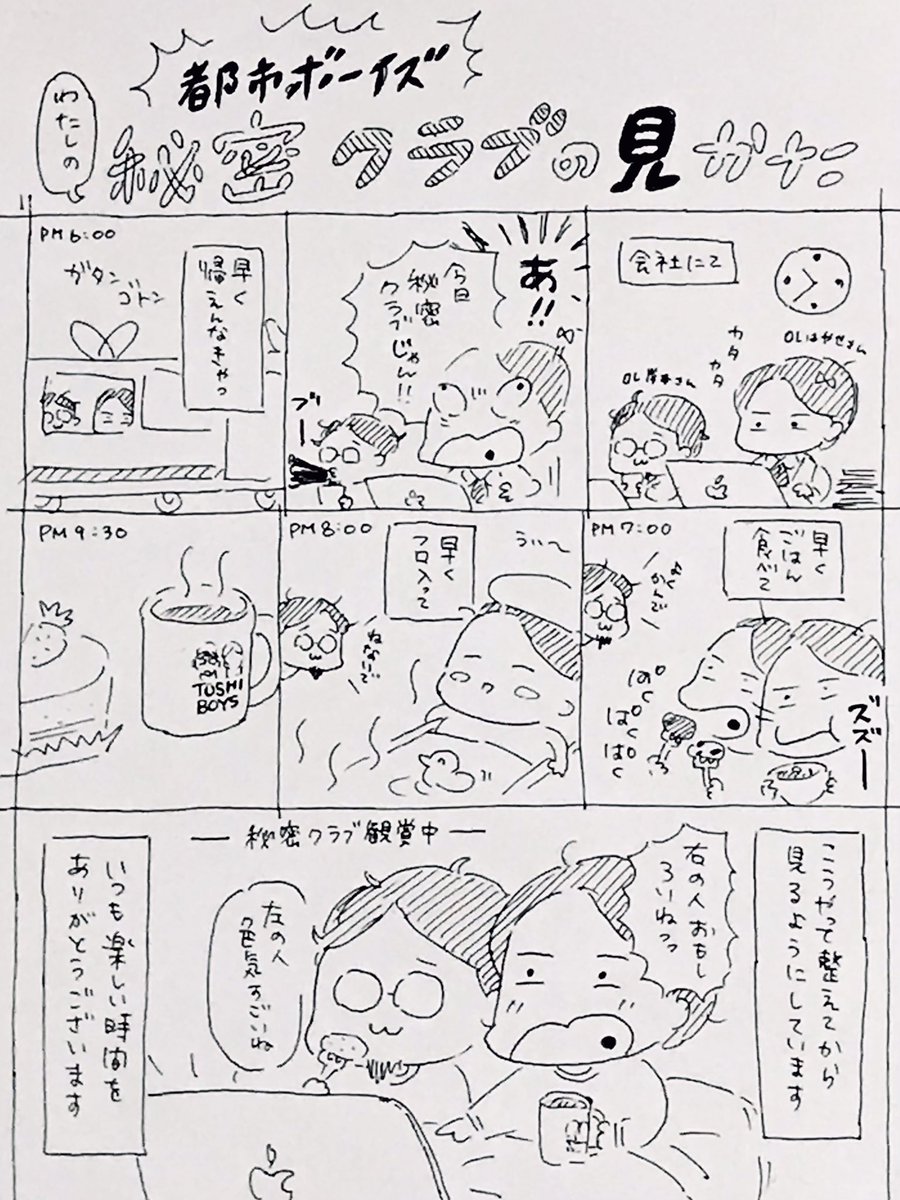 都市ボーイズ
わたしの
秘密クラブの見かた
会社にて
OLはやせさん
カタ
カタ
OL岸本さん
あ!!
今日
秘密
クラブじゃん!!
ブー
PM6:00
早く
帰えんなきゃっ
ガタン
ゴトン
PM7:00
早く
ごはん
食べて
よくかんで
ぱく
ぱく
ぱく
ズズー
PM8:00
早く
フロ入って
うぃ〜
ねないで
PM9:30
TOSHI
BOYS
こうやって整えてから
見るようにしています
― 秘密クラブ観賞中 ―
右の人おもし
ろいねっっ
左の人
色気すごいね
いつも楽しい時間を
ありがとうございます